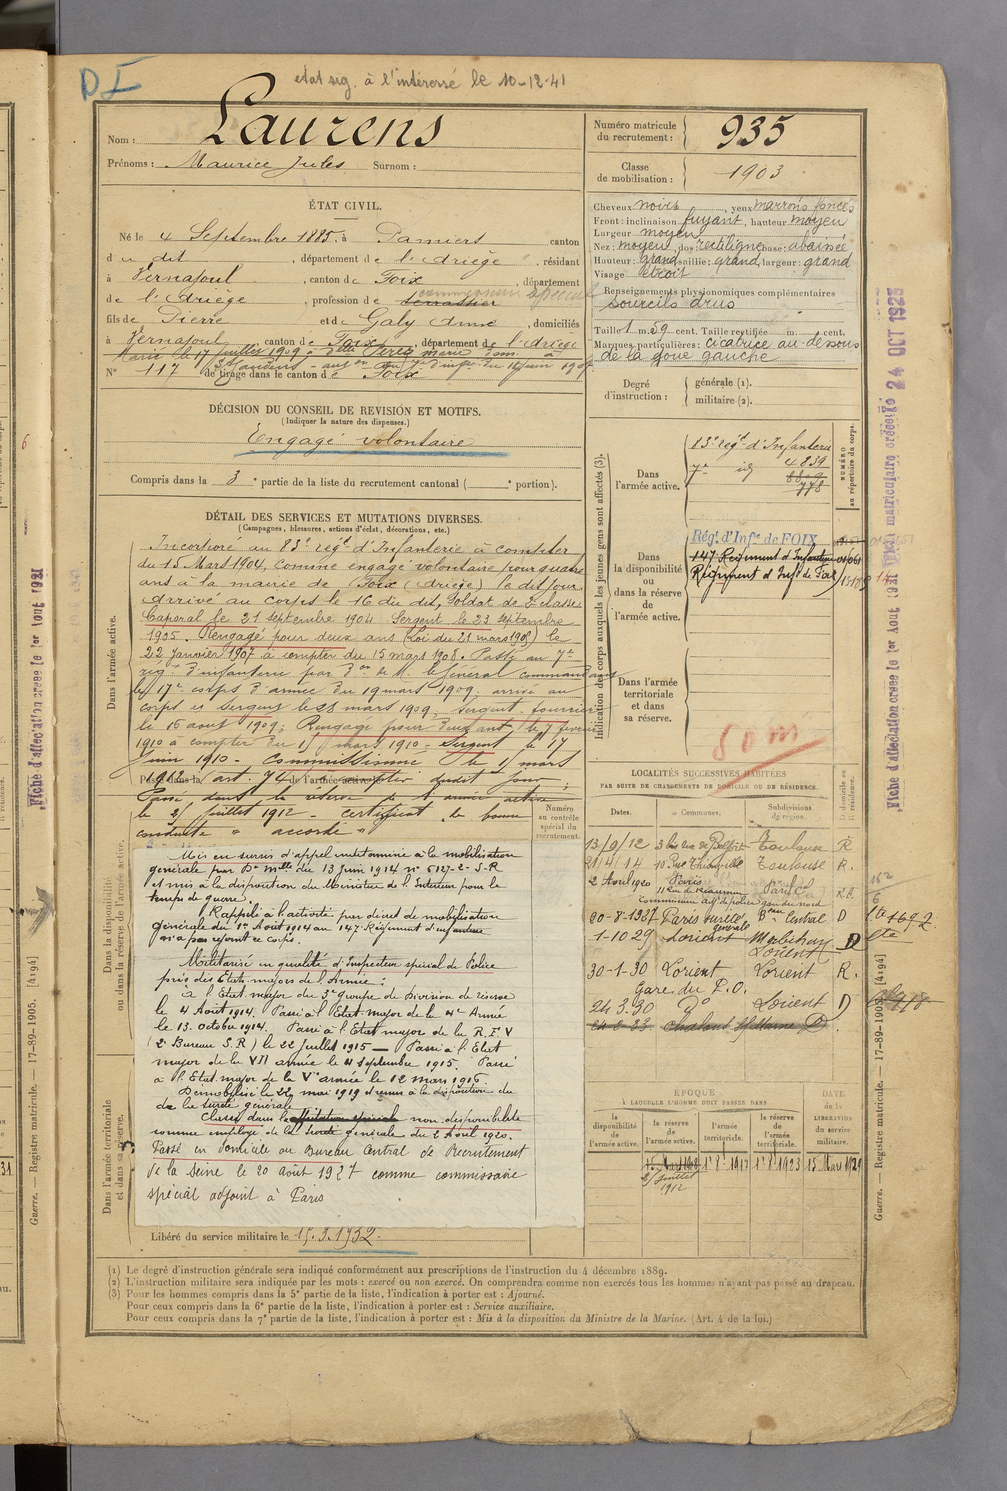 D I
etat sig. à l'intéressé le 10-12-41
Nom : Laurens
Prénoms : Maurice Jules Surnom :
Numéro matricule du recrutement : 935
Classe de mobilisation : 1903
ÉTAT CIVIL.
Né le 4 Septembre 1885, à Pamiers canton
du dit, département de l'Ariège, résidant
à Vernajoul, canton de Foix, département
de l'Ariège, profession de terrassier commissaire spécial
fils de Pierre et de Galy Anne, domiciliés
à Vernajoul, canton de Foix, département de l'Ariège
Marié le 17 juillet 1909 à Delle Perez Marie dom. à
N° 117 de tirage dans le canton de Foix
Cheveux noirs, yeux marrons foncés
Front : inclinaison fuyant, hauteur moyen
Largeur moyen
Nez : moyen, dos rectiligne base : abaissée
Hauteur : Grand saillie : grand, largeur : grand
Visage étroit
Renseignements physionomiques complémentaires
sourcils drus
Taille 1 m. 59 cent. Taille rectifiée m. cent.
Marques particulières : cicatrice au-dessous
de la joue gauche
Degré d'instruction : générale (1). militaire (2).
DÉCISION DU CONSEIL DE REVISION ET MOTIFS.
(Indiquer la nature des dispenses.)
Engagé volontaire
Compris dans la 3e partie de la liste du recrutement cantonal ( e portion).
DÉTAIL DES SERVICES ET MUTATIONS DIVERSES.
(Campagnes, blessures, actions d'éclat, décorations, etc.)
Dans l'armée active.
Incorporé au 83e regt d'Infanterie à compter
du 15 Mars 1904, comme engagé volontaire pour quatre
ans à la mairie de Foix (Ariège) le dit jour
Arrivé au corps le 16 du dit, Soldat de 2e classe
Caporal le 21 septembre 1904 Sergent le 23 septembre
1905. Rengagé pour deux ans (Loi du 21 mars 1905) le
22 Janvier 1907 à compter du 15 mars 1908. Passé au 7e
regt d'infanterie par Don de M. le Général commandant
le 17e corps d'armée du 19 mars 1909, arrivé au
corps et Sergent le 23 mars 1909, sergent fourrier
le 16 aout 1909, Rengagé pour deux ans le 7 février
1910 à compter du 15 mars 1910 - Sergent le 17
Juin 1910 - Commissionné le 15 mars
Passé dans la réserve de l'armée active
le 21 Juillet 1912 - certificat de bonne
conduite "accordé"
Numéro au contrôle spécial du recrutement.
Dans la disponibilité ou dans la réserve de l'armée active.
Mis en sursis d'appel indéterminé à la mobilisation
générale par Don Mlle du 13 Juin 1914 n° 6127-2-S-R
et mis à la disposition du Ministre de l'Intérieur pour le
temps de guerre.
Rappelé à l'activité par décret de mobilisation
générale du 1er Août 1914 au 147 Régiment d'infanterie
n'a pas rejoint ce corps.
Militarisé en qualité d'Inspecteur spécial de Police
près des Etats majors de l'Armée :
à l'Etat major du 3e Groupe de Division de réserve
le 4 Août 1914. Passé à l'Etat major de la 4e Armée
le 13 Octobre 1914. Passé à l'Etat major de la R.F.V
(2e Bureau S.R) le 22 Juillet 1915 — Passé à l'Etat
major de la VII armée le 4 septembre 1915. Passé
à l'Etat major de la Ve armée le 12 mars 1916.
Démobilisé le 22 mai 1919 et remis à la disposition du
de la Sureté générale
Classé dans l'affectation spéciale non disponibilité
comme employé de la Sureté générale du 2 Avril 1920.
Passé en domicile au Bureau Central de Recrutement
de la Seine le 20 août 1927 comme commissaire
spécial adjoint à Paris
Dans l'armée territoriale et dans sa réserve.
Libéré du service militaire le 15.3.1932.
Indication des corps auxquels les jeunes gens sont affectés (3).
Dans l'armée active.
83e regt d'Infanterie
7e id 4839
778
NUMÉRO au répertoire du corps.
Dans la disponibilité ou dans la réserve de l'armée active.
Régt d'Infie de FOIX
147 Régiment d'Infanterie
Régiment d'Inf. de Foix
Dans l'armée territoriale et dans sa réserve.
LOCALITÉS SUCCESSIVES HABITÉES
PAR SUITE DE CHANGEMENTS DE DOMICILE OU DE RÉSIDENCE.
Dates. Communes. Subdivisions de région. D domicile ou R résidence.
13/9/12 3 bis rue de Belfort Toulouse R
21/4/14 10 Rue Thionville Toulouse R.
2 Avril 1920 Paris 11 Rue de Reaumur Paris
20-8-1927 Paris sureté générale Bau Central D
1-10 29 Lorient Morbihan Lorient D
30-1-30 Lorient Lorient R.
Gare du P.O.
24.3.30 do Lorient D
ÉPOQUE
À LAQUELLE L'HOMME DOIT PASSER DANS.
la disponibilité de l'armée active. la réserve de l'armée active. l'armée territoriale. la réserve de l'armée territoriale. DATE de la LIBÉRATION du service militaire.
21 Juillet 1912
15 Mars 1929
Fiche d'affectation créée le 1er Aout 1921
Fiche matriculaire créée le 24 OCT 1925
Guerre. — Registre matricule. — 17-89-1905. [4194]
(1) Le degré d'instruction générale sera indiqué conformément aux prescriptions de l'instruction du 4 décembre 1889.
(2) L'instruction militaire sera indiquée par les mots : exercé ou non exercé. On comprendra comme non exercés tous les hommes n'ayant pas passé au drapeau.
(3) Pour les hommes compris dans la 5e partie de la liste, l'indication à porter est : Ajourné.
Pour ceux compris dans la 6e partie de la liste, l'indication à porter est : Service auxiliaire.
Pour ceux compris dans la 7e partie de la liste, l'indication à porter est : Mis à la disposition du Ministre de la Marine. (Art. 4 de la loi.)